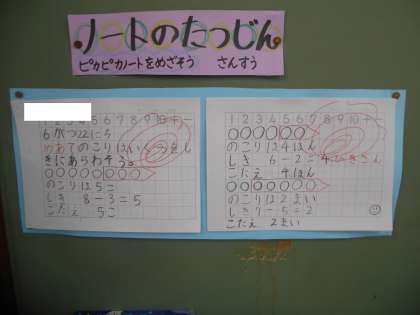 ノートのたつじん
ピカピカノートをめざそう さんすう
1 2 3 4 5 6 7 8 9 10 + -
6がつ22にち
めあて のこりはいくつ
きにあらわそう。
のこりは5こ
しき 8-3=5
こたえ 5こ
1 2 3 4 5 6 7 8 9 10 + -
のこりは4ほん
しき 6-2=4
こたえ 4ほん
のこりは2まい
しき 7-5=2
こたえ 2まい